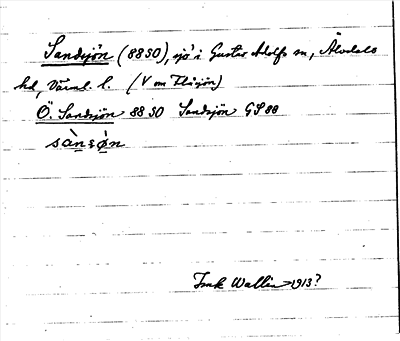 Sandsjön (8850), sjö i Gustav Adolfs sn, Älvdals
hd, Värml. l. (V om Flåsjön)
Ö. Sandsjön 8850 Sandsjön GS 88
sànsøn
Wallin 1913?